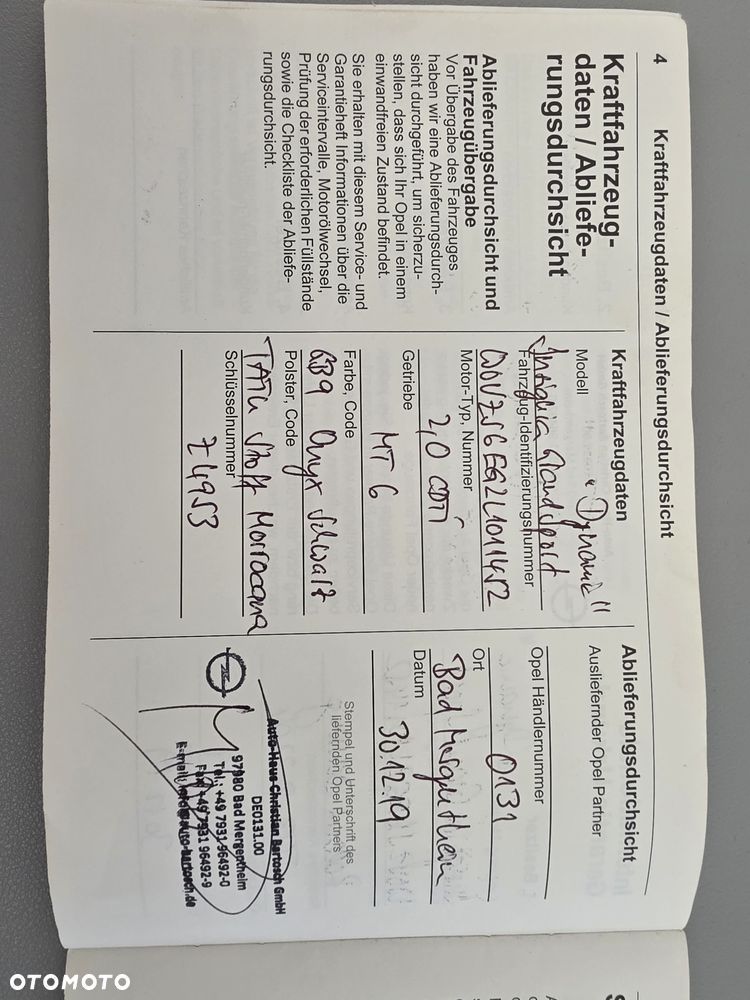 4
Kraftfahrzeugdaten / Ablieferungsdurchsicht
Kraftfahrzeug-
daten / Abliefe-
rungsdurchsicht
Ablieferungsdurchsicht und
Fahrzeugübergabe
Vor Übergabe des Fahrzeuges
haben wir eine Ablieferungsdurch-
sicht durchgeführt, um sicherzu-
stellen, dass sich Ihr Opel in einem
einwandfreien Zustand befindet.
Sie erhalten mit diesem Service- und
Garantieheft Informationen über die
Serviceintervalle, Motorölwechsel,
Prüfung der erforderlichen Füllstände
sowie die Checkliste der Abliefe-
rungsdurchsicht.
Kraftfahrzeugdaten
Modell
"Dynamic"
Insignia Grand Sport
Fahrzeug-Identifizierungsnummer
W0VZS6EG2L1011452
Motor-Typ, Nummer
2,0 CDTI
Getriebe
MT 6
Farbe, Code
GB9 Onyx Schwarz
Polster, Code
TATU Stoff Morrocana
Schlüsselnummer
Z4953
Ablieferungsdurchsicht
Ausliefernder Opel Partner
Opel Händlernummer
0131
Ort
Bad Mergentheim
Datum
30.12.19
Stempel und Unterschrift des
liefernden Opel Partners
Auto-Haus Christian Bartosch GmbH
DE0131.00
97980 Bad Mergentheim
Tel.: +49 7931 96492-0
Fax: +49 7931 96492-9
E-mail: info@auto-bartosch.de
OTOMOTO